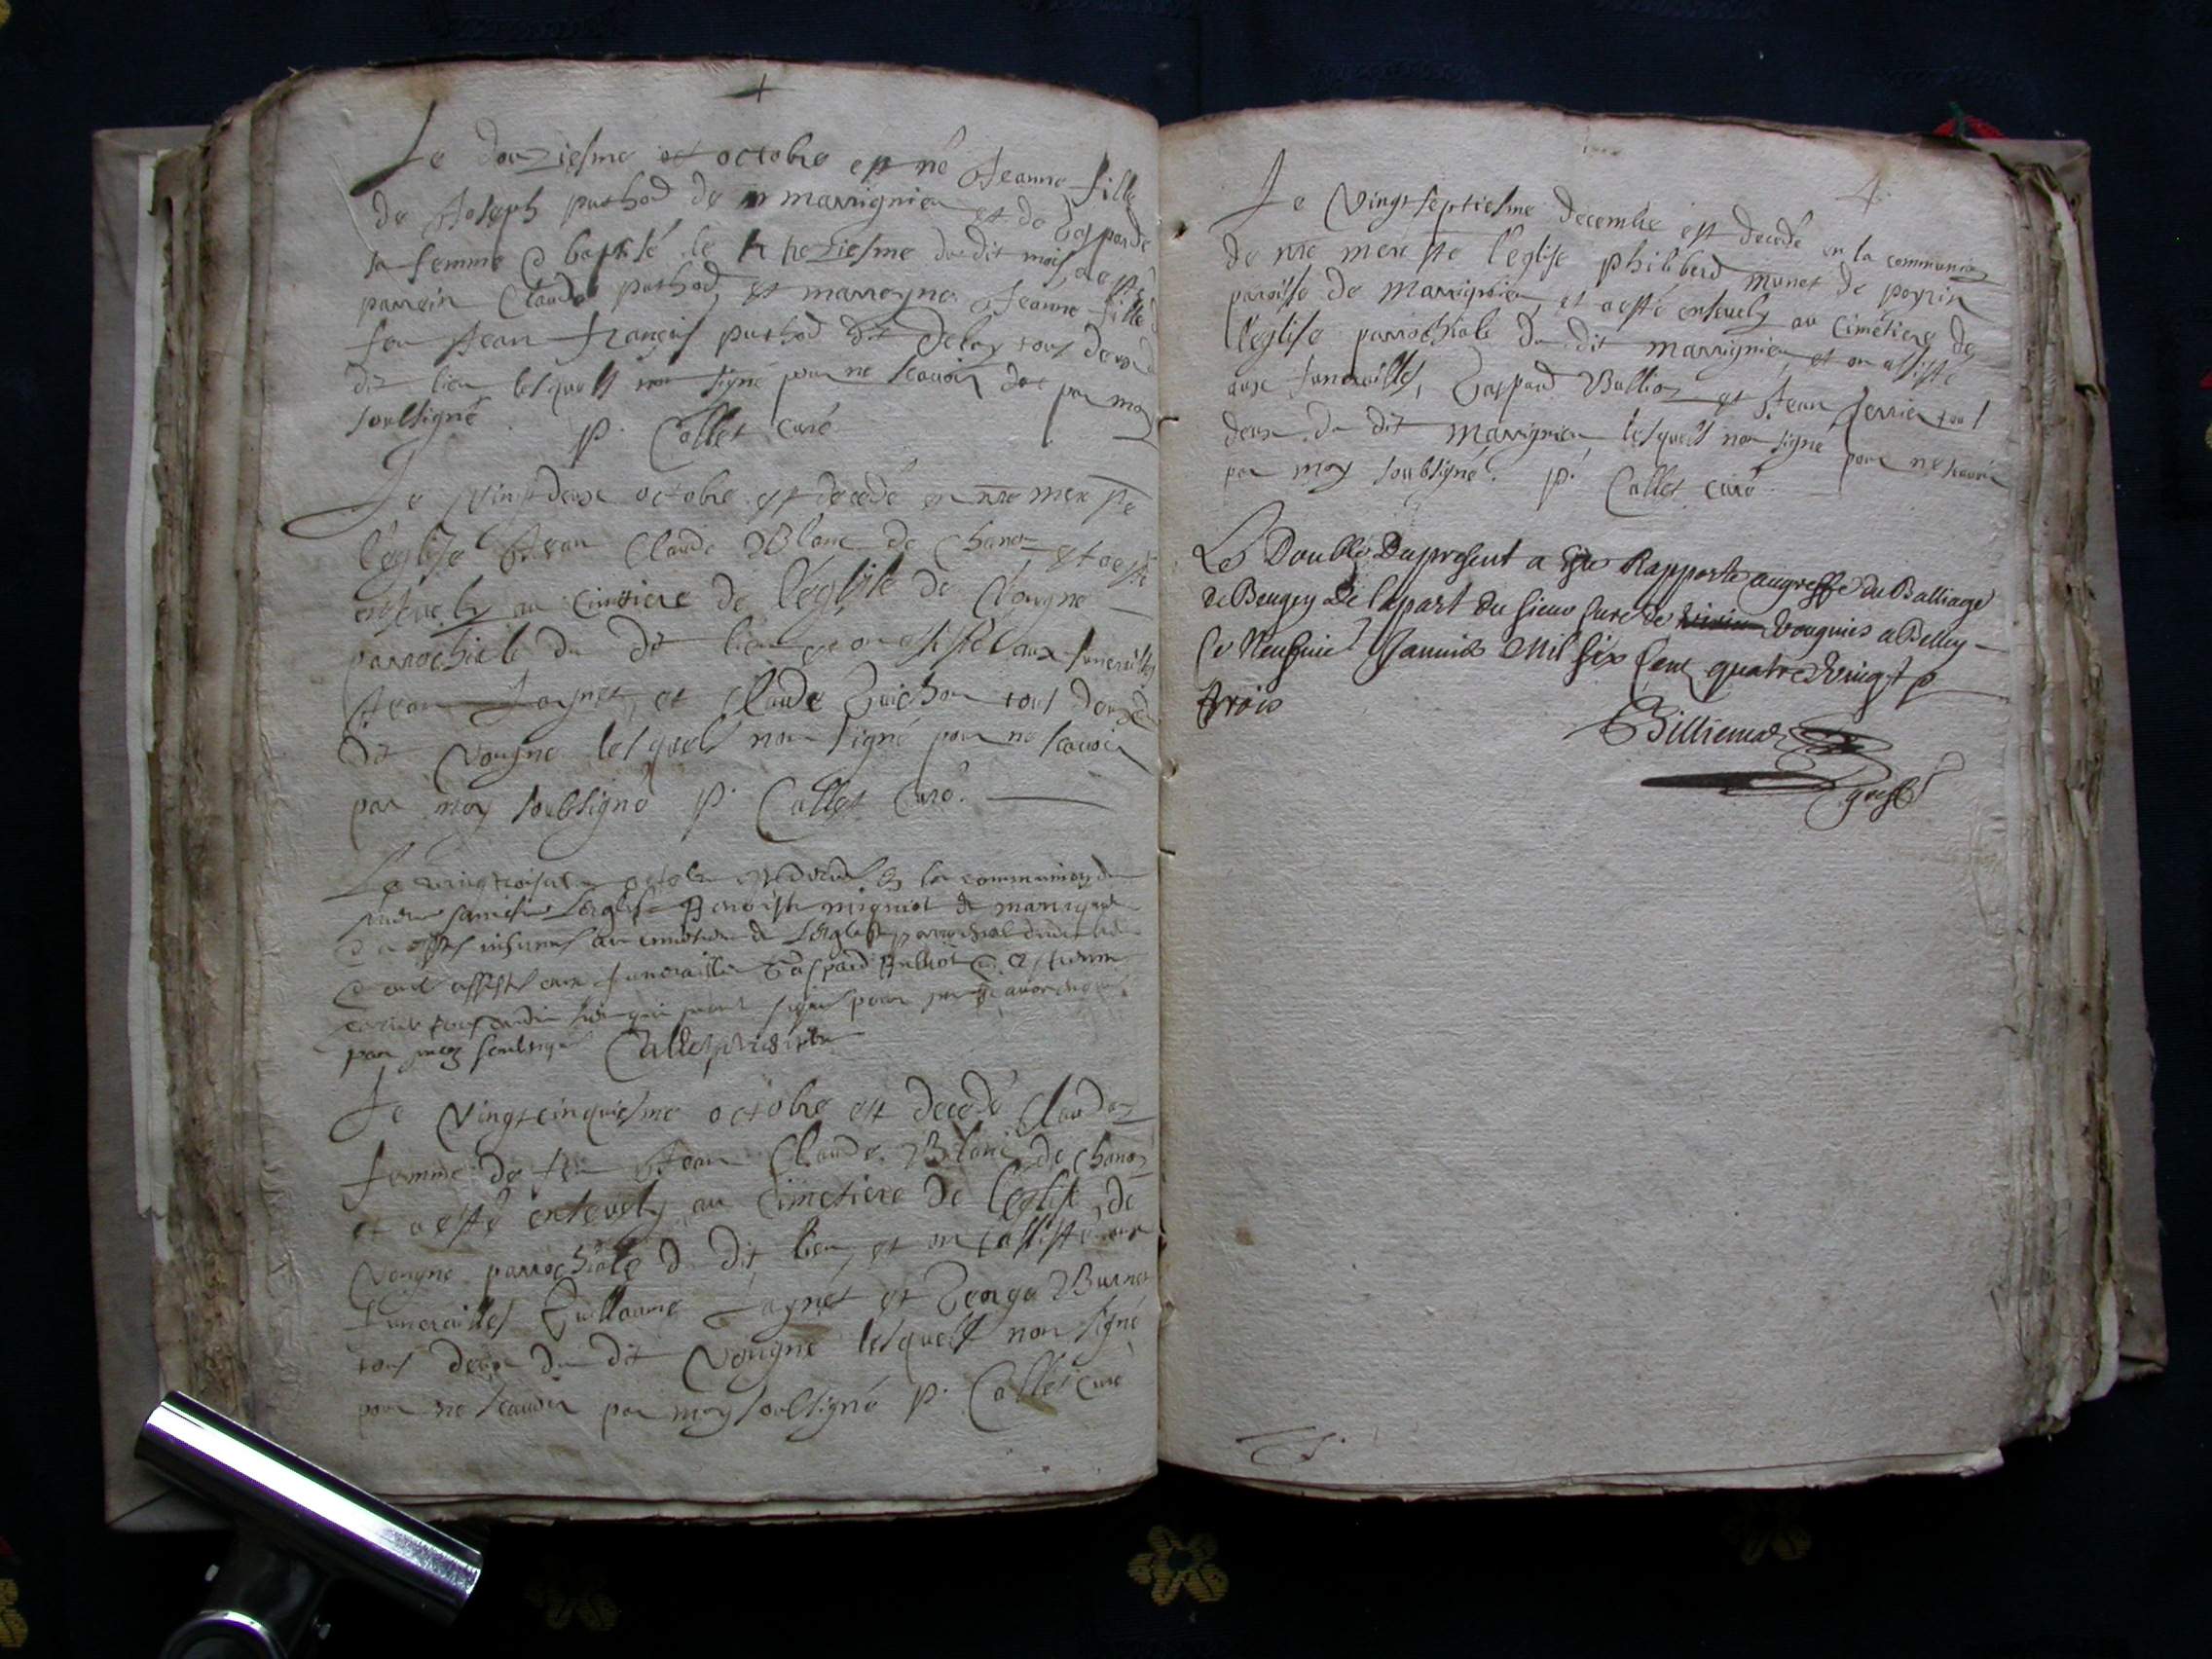 Le douziesme octobre est né Jeanne fille
de Joseph puthod de marrignieu et de Gasparde
sa femme & baptisé le treziesme du dit mois, a esté
parrein Claude puthod, et marreyne Jeanne fille
feu Jean françois puthod dit delay tous deux du
dit lieu lesquels non signé pour ne scavoir par moy
soubsigné p. Callet curé
Le vingt deux octobre est decedé en nre mere ste
l'eglise Jean Claude Blanc de Chanoz et a esté
ensevely au cimetiere de l'eglise de Vougne
parrochiale du dit lieu et on assisté aux funerailles
Jean Jagnet, et Claude Guichon tout deux du
dit Vougne lesquels non signé pour ne scavoir
par moy soubsigné p. Callet Curé.
Le octobre est decedé en la communion de
l'eglise Benoiste migniot de
au cimetiere de l'eglise parrochiale dudit lieu
& ont assisté aux funerailles Gaspard Bulliot &
signé pour
par moy soubsigné Callet
Le vingt cinquiesme octobre est decedé Clauda
femme de feu Jean Claude Blanc de Chanoz
et a esté ensevely au cimetiere de l'eglise de
Vougne parrochiale d dit lieu, et on assisté aux
funerailles Guillaume Jagnet et George Burnet
tous deux du dit Vougne lesquels non signé
pour ne scavoir par moy soubsigné p. Callet curé
4.
Le vingt septiesme decembre est decedé en la communion
de nre mere ste l'eglise philiberd munet de poyrin
paroisse de marrignieu, et a esté ensevely au cimetiere de
l'eglise parrochiale du dit marrignieu et on assisté
aux funerailles, Gaspard Bullioz et Jean ferrier tout
deux du dit marrignieu lesquels non signé pour ne scavoir
par moy soubsigné. p. Callet curé
Le Double Du present a este Rapporte au greffe du Balliage
de Beugey de la part du sieur Cure de Vougnies a Belley
Ce Neufvie Janvier Mil six Cent quatre Vingt
trois
Billiemaz
greff